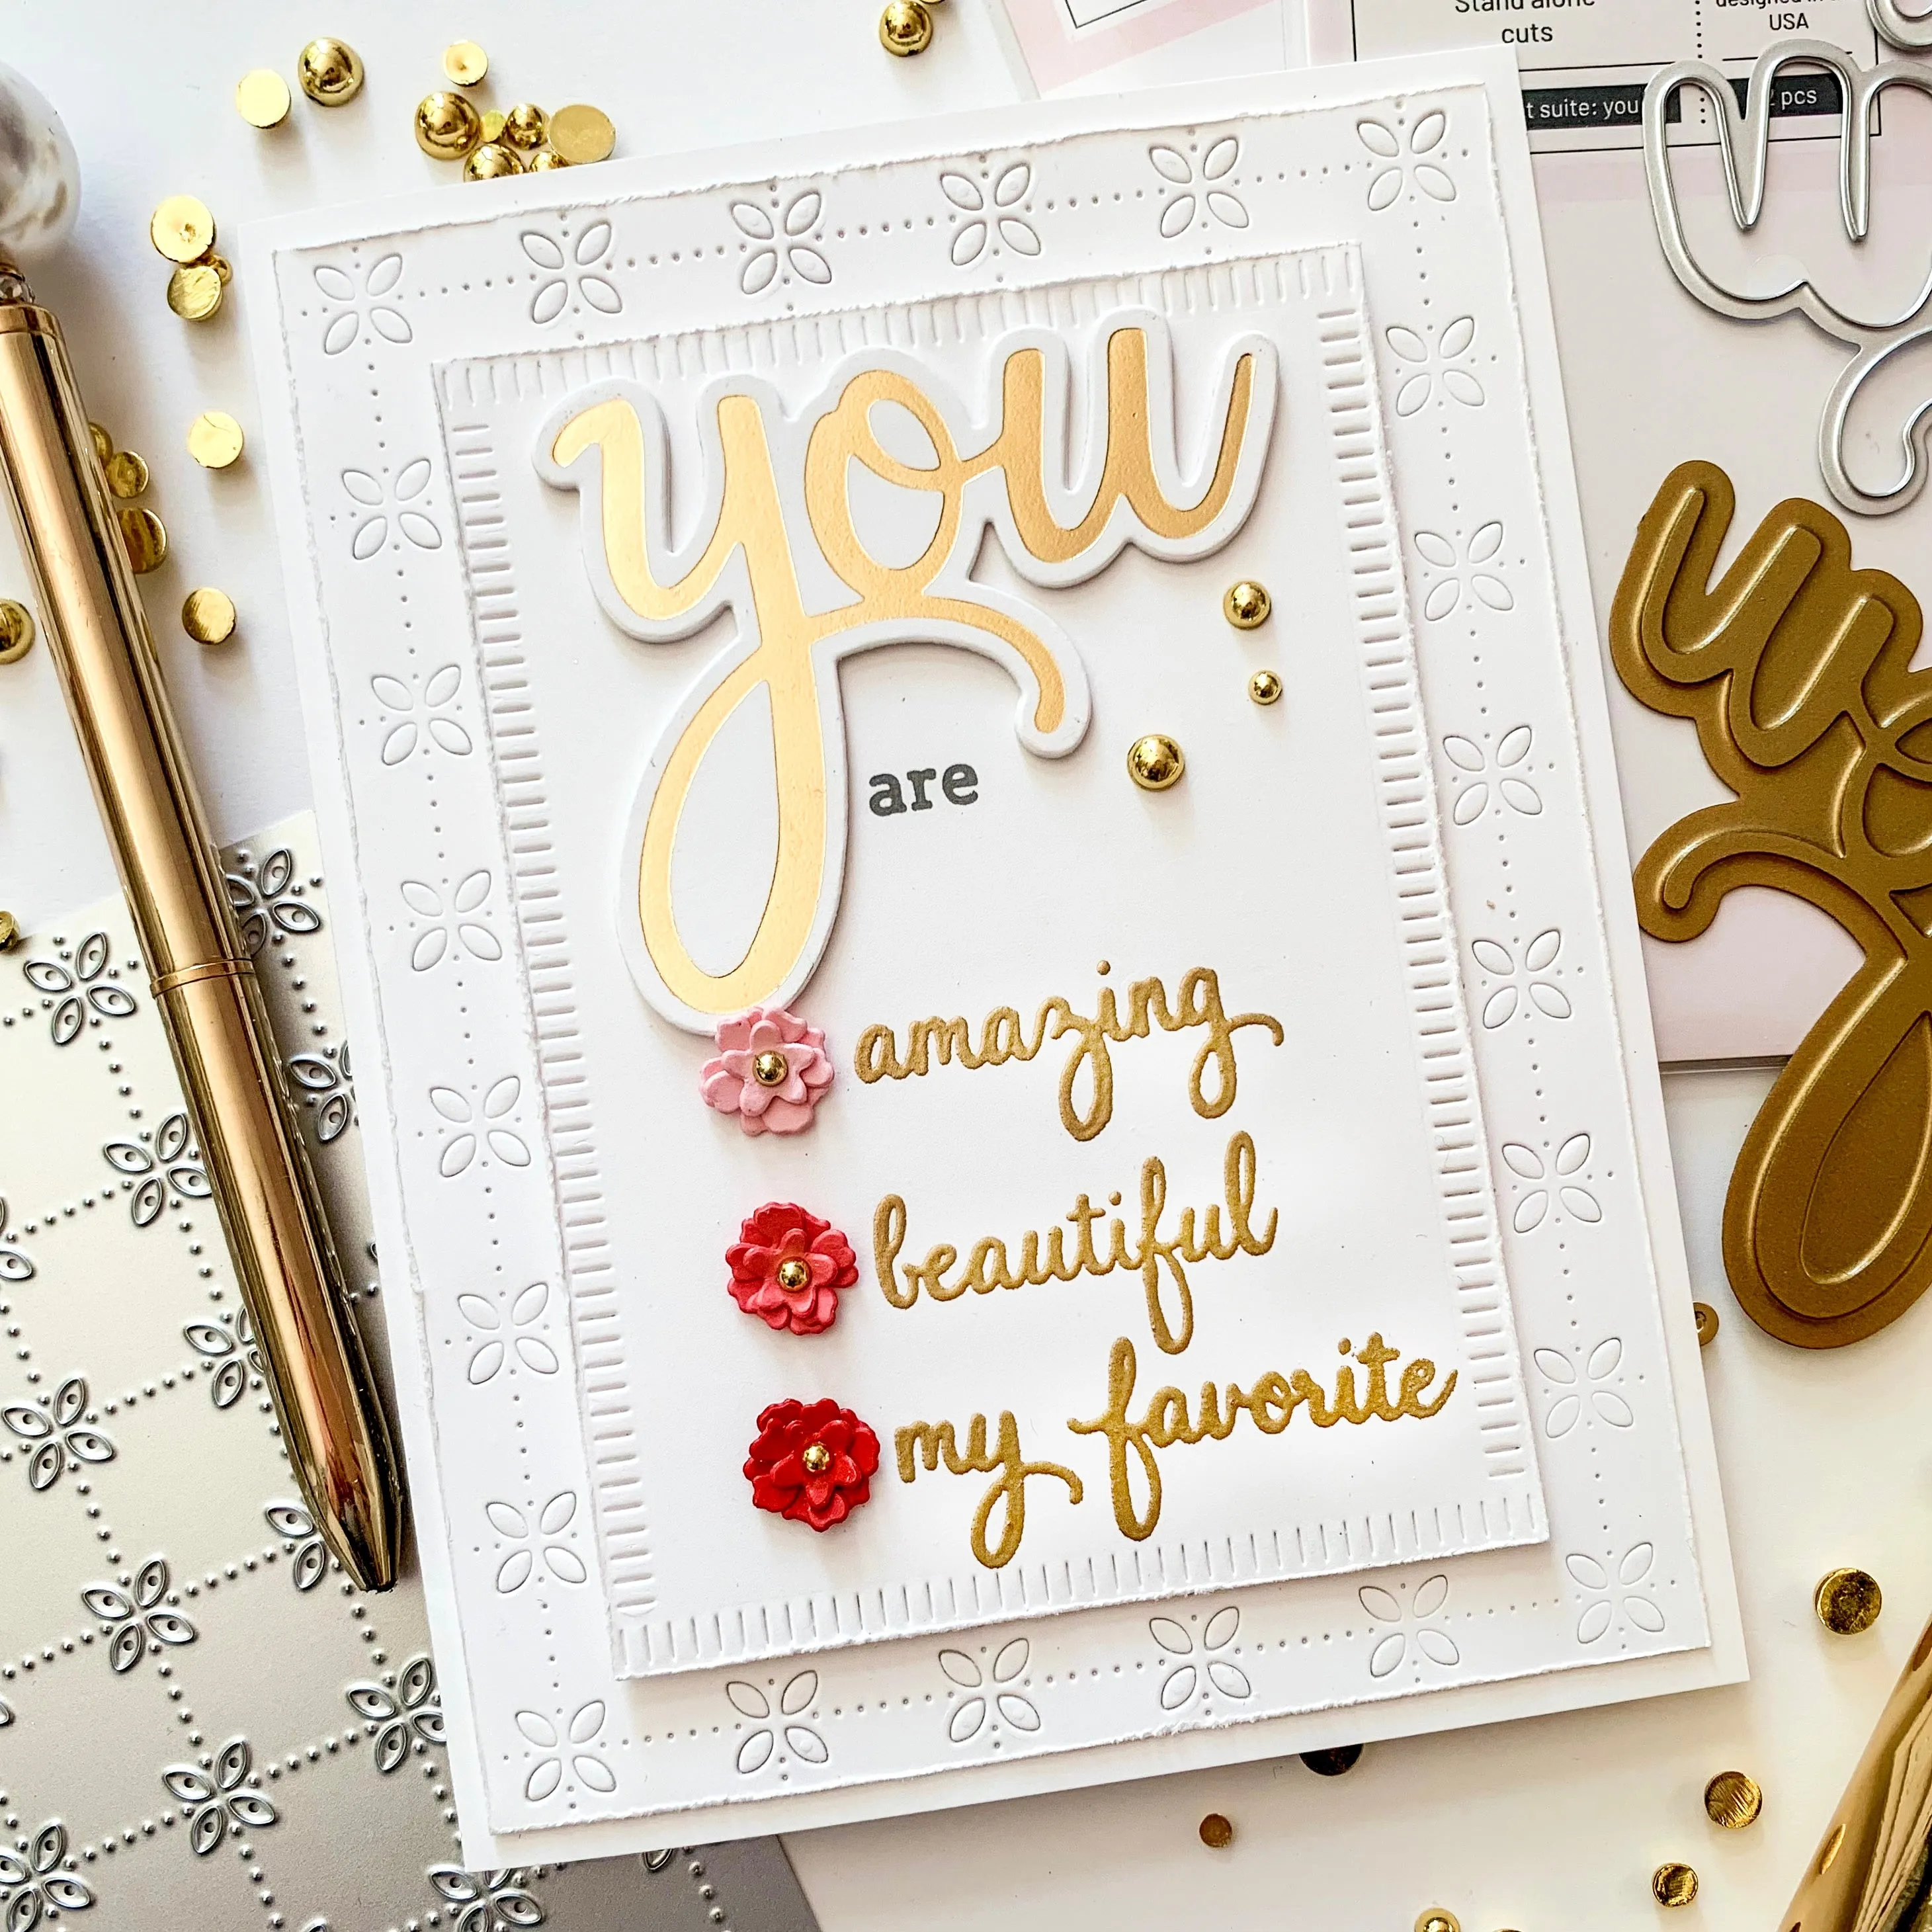 Stand alone
cuts
USA
t suite: you
pcs
you
are
amazing
beautiful
my favorite